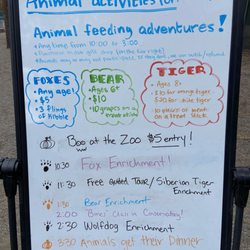 Animal activities for
Animal Feeding adventures!
• Any time from 10:00 to 3:00
FOXES
• Any age!
• $5
• 3 flings of kibble
BEAR
• Ages 6+
• $10
• 10 grapes on a
TIGER
• Ages 8+
• 10 pieces of meat on a meat stick
Boo at the Zoo $5 entry!
10:30 Fox Enrichment!
11:30 Free Guided Tour/Siberian Tiger Enrichment
1:30 Bear Enrichment
2:00
2:30 Wolfdog Enrichment
3:30 Animals get their Dinner